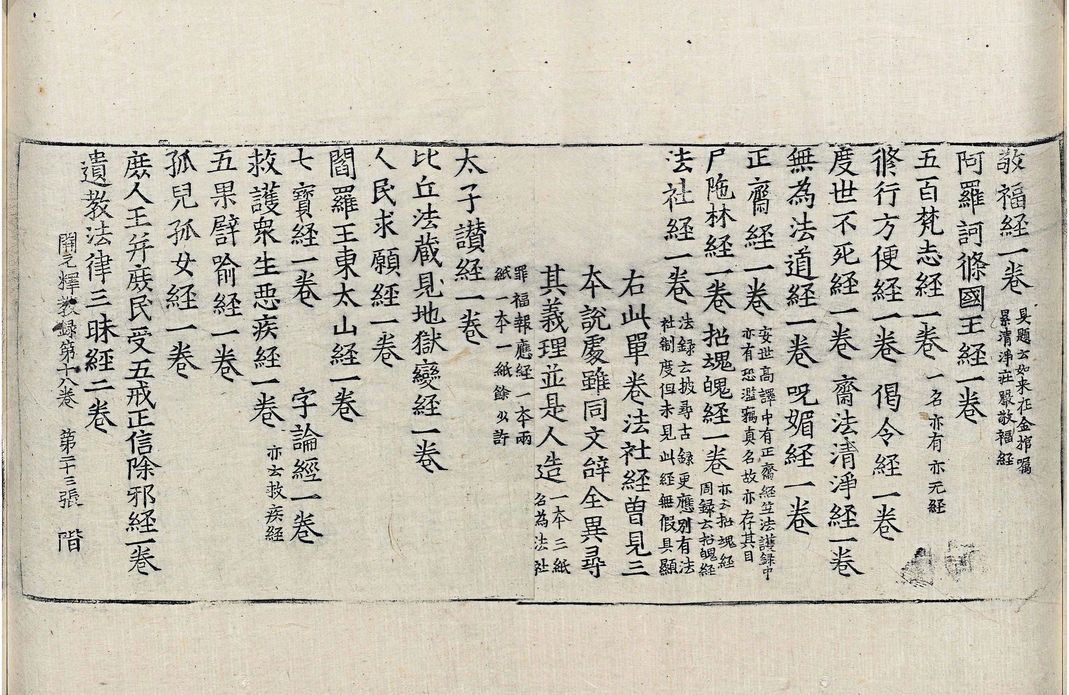 敬福経一卷 具題云如来在金棺囑
累清淨莊嚴敬福経
阿羅訶條國王経一卷
五百梵志経一卷 一名亦有亦无経
修行方便経一卷 偈令経一卷
度世不死経一卷 齋法清淨経一卷
無為法道経一卷 呪媚経一卷
正齋経一卷 安世高譯中有正齋経竺法護録中
亦有恐濫竊真名故亦存其目
尸陁林経一卷 招魂魄経一卷 亦云招魂経
周録云招魄経
法社経一卷 法録云披尋古録更應別有法
社制度但未見此経無假具顯
右此單卷法社経曽見三
本說處雖同文辞全異尋
其義理並是人造 一本三紙
名為法社
罪福報應経一本兩
紙一本一紙餘少許
太子讃経一卷
比丘法蔵見地獄變経一卷
人民求願経一卷
閻羅王東太山経一卷
七寳経一卷 字論經一卷
救護衆生惡疾経一卷 亦云救疾経
五果譬喻経一卷
孤兒孤女経一卷
庶人王并庶民受五戒正信除邪経一卷
遺教法律三昧経二卷
開元釋教録第十八卷 第二十三張 階